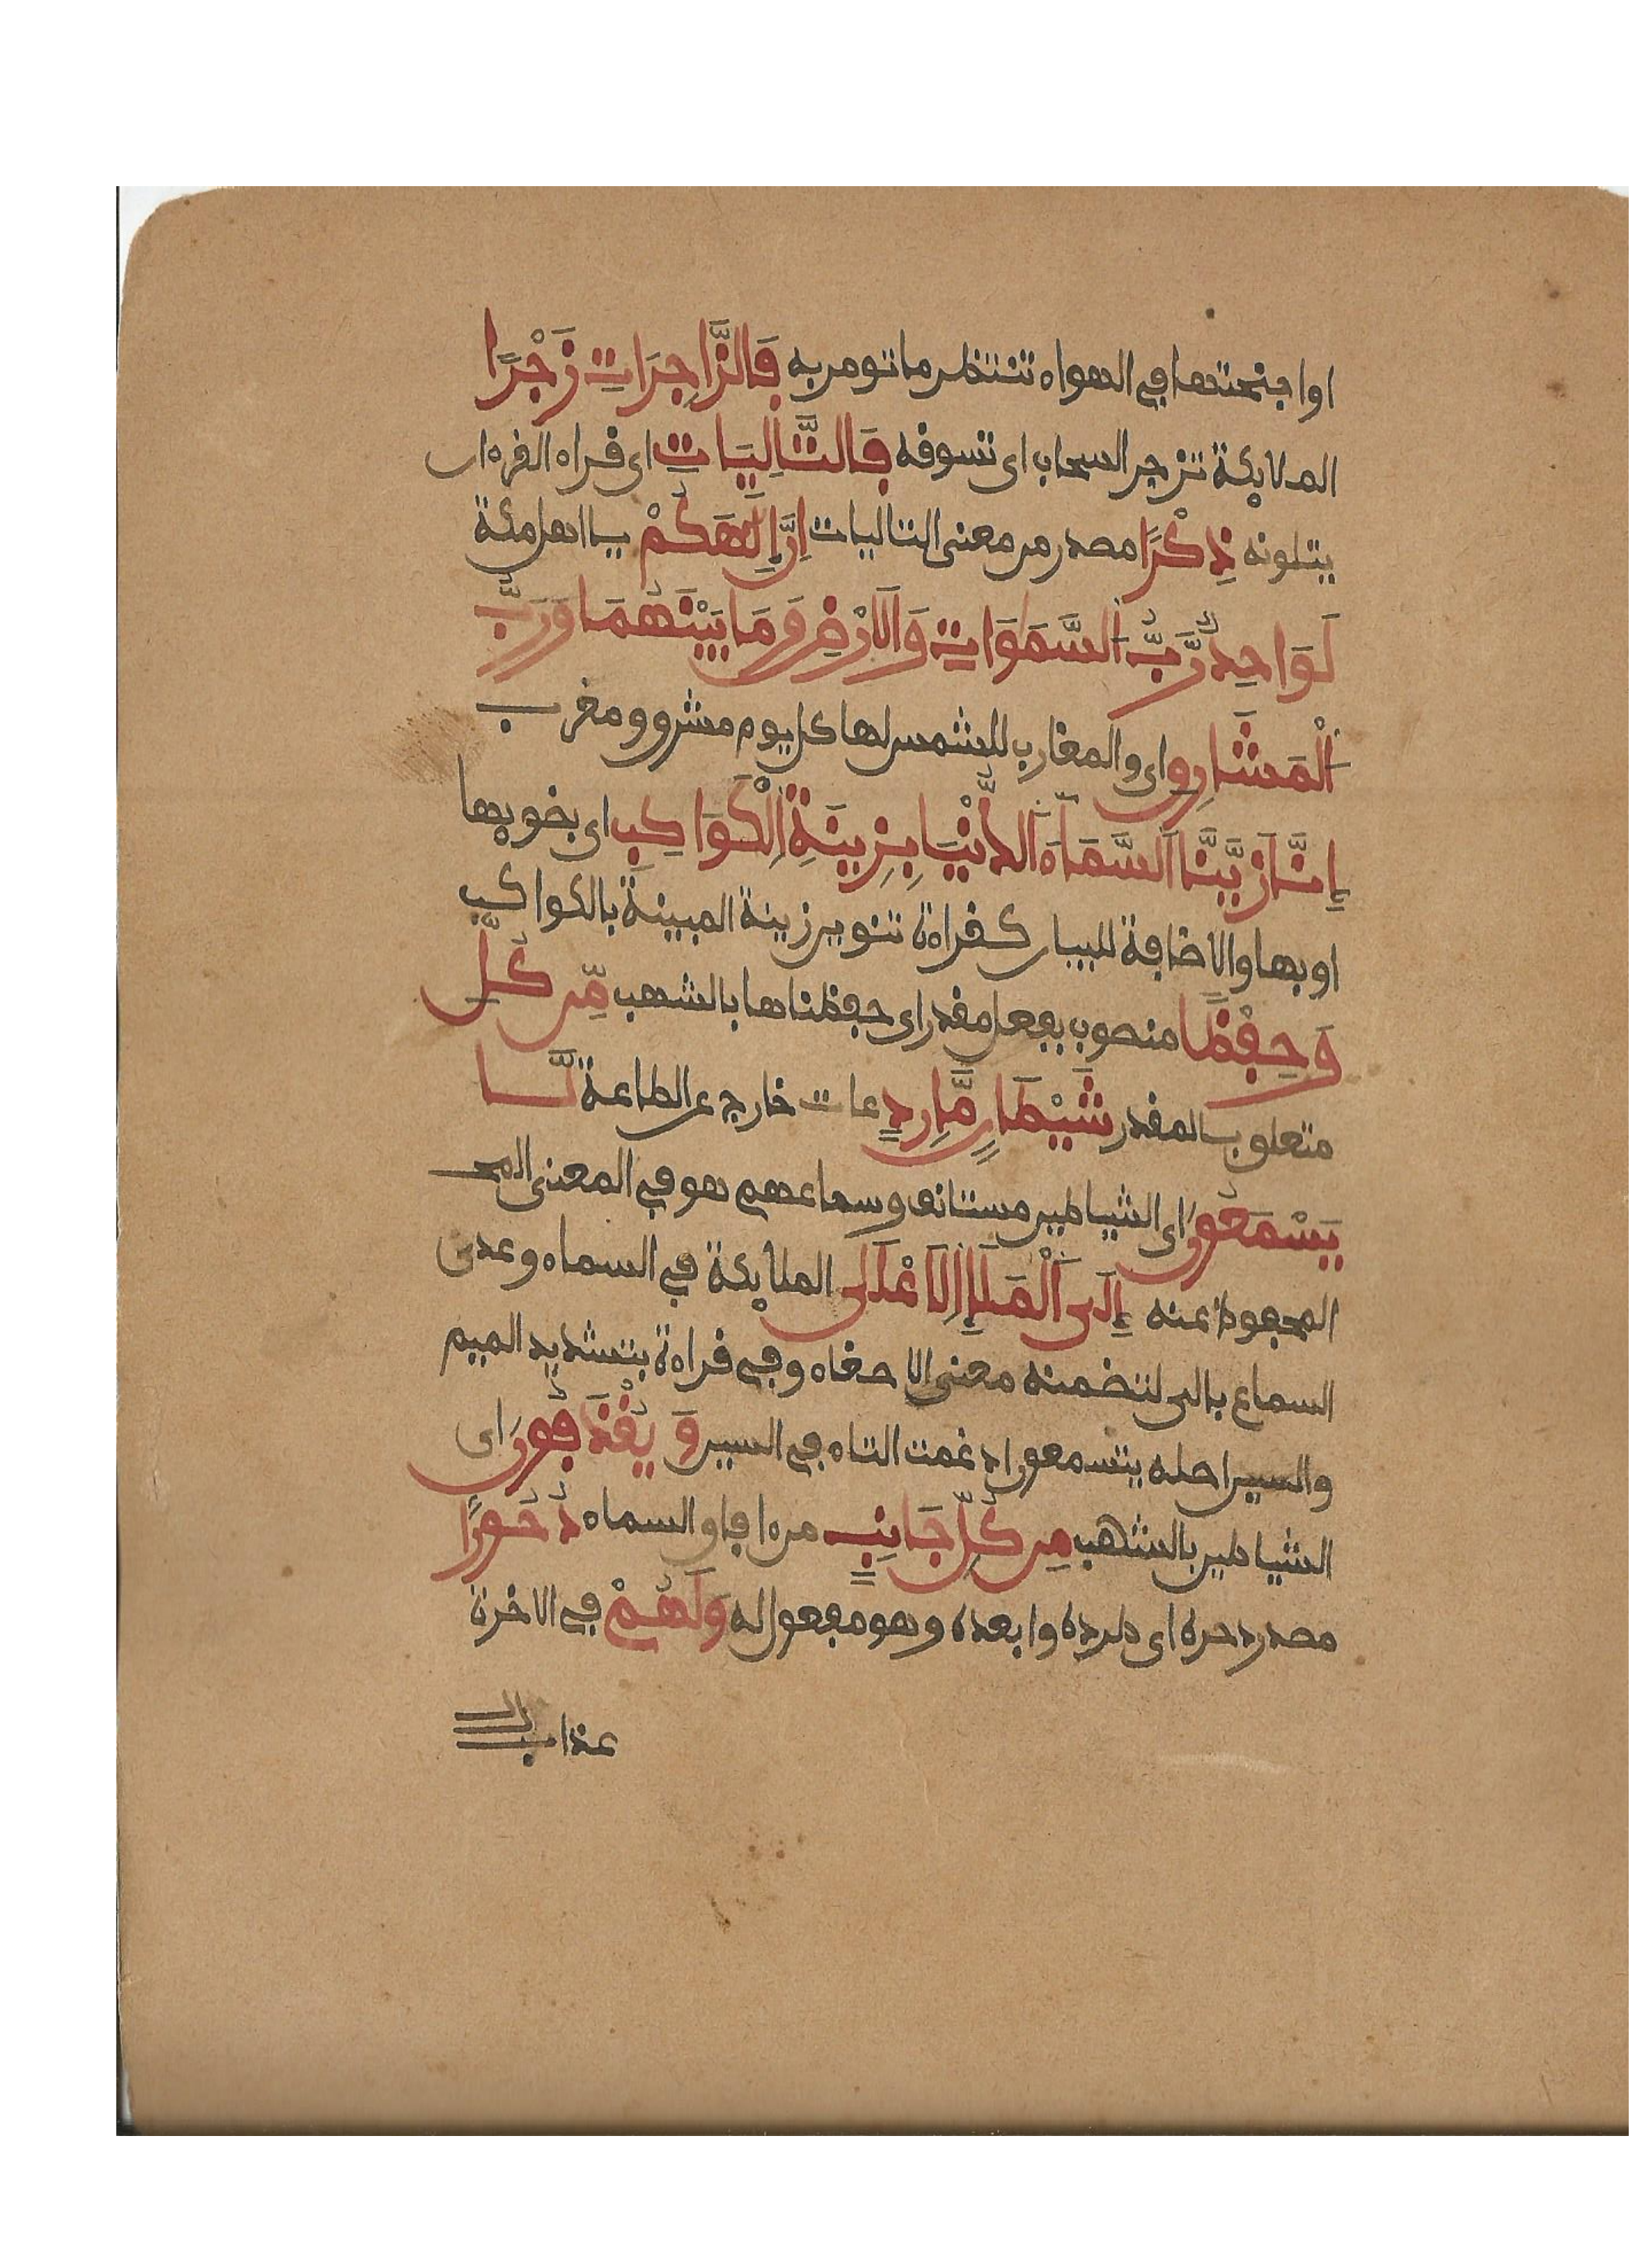 او اجنحتها في الهواء تنتظر ما تومر به فَالزَّاجِرَاتِ زَجْرًا
الملايكة تزجر السحاب اى تسوقه فَالتَّالِيَاتِ اى قراء القرءان
يتلونه ذِكْرًا مصدر من معنى التاليات إِنَّ إِلَٰهَكُمْ يا اهل مكة
لَوَاحِدٌ رَّبُّ السَّمَوَاتِ وَالَارْضِ وَمَا بَيْنَهُمَا وَرَبُّ
الْمَشَارِقِ اى والمغارب للشمس لها كل يوم مشرق ومغرب
إِنَّا زَيَّنَّا السَّمَاءَ الدُّنْيَا بِزِينَةِ الْكَوَاكِبِ اى بضويها
او بها والاضافة للبيان كقراءة تنوين زينة المبينة بالكواكب
وَحِفْظًا منصوب بفعل مقدر اى حفظناها بالشهب مِّن كُلِّ
متعلق بالمقدر شَيْطَانٍ مَّارِدٍ عات خارج عن الطاعة لَّا
يَسْمَعُونَ اى الشياطين مستانف وسماعهم هو في المعنى المحـ
المحفوظ عنه إِلَى الْمَلَإِ الَاعْلَى الملايكة في السماء وعدى
السماع بالى لتضمنه معنى الاصغاء وفي قراءة بتشديد الميم
والسين اصله يتسمعون ادغمت التاء في السين وَيُقْذَفُونَ اى
الشياطين بالشهب مِن كُلِّ جَانِبٍ من ءافاق السماء دُحُورًا
مصدر دحره اى طرده وابعده وهو مفعول له وَلَهُمْ في الاخرة
عذاب